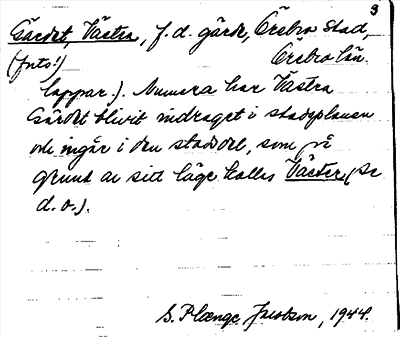 3
Gärdet, Västra, f.d. gärde, Örebro stad,
(fnts!) Örebro län.
lappar.). Numera har Västra
Gärdet blivit indraget i stadsplanen
och ingår i den stadsdel, som på
grund av sitt läge kallas Väster (se
d.o.).
S. Plænge Jacobson, 1944.